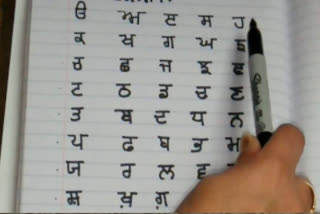 ੳ ਅ ੲ ਸ ਹ
ਕ ਖ ਗ ਘ ਙ
ਚ ਛ ਜ ਝ ਞ
ਟ ਠ ਡ ਢ ਣ
ਤ ਥ ਦ ਧ ਨ
ਪ ਫ ਬ ਭ ਮ
ਯ ਰ ਲ ਵ
ਸ਼ ਖ਼ ਗ਼